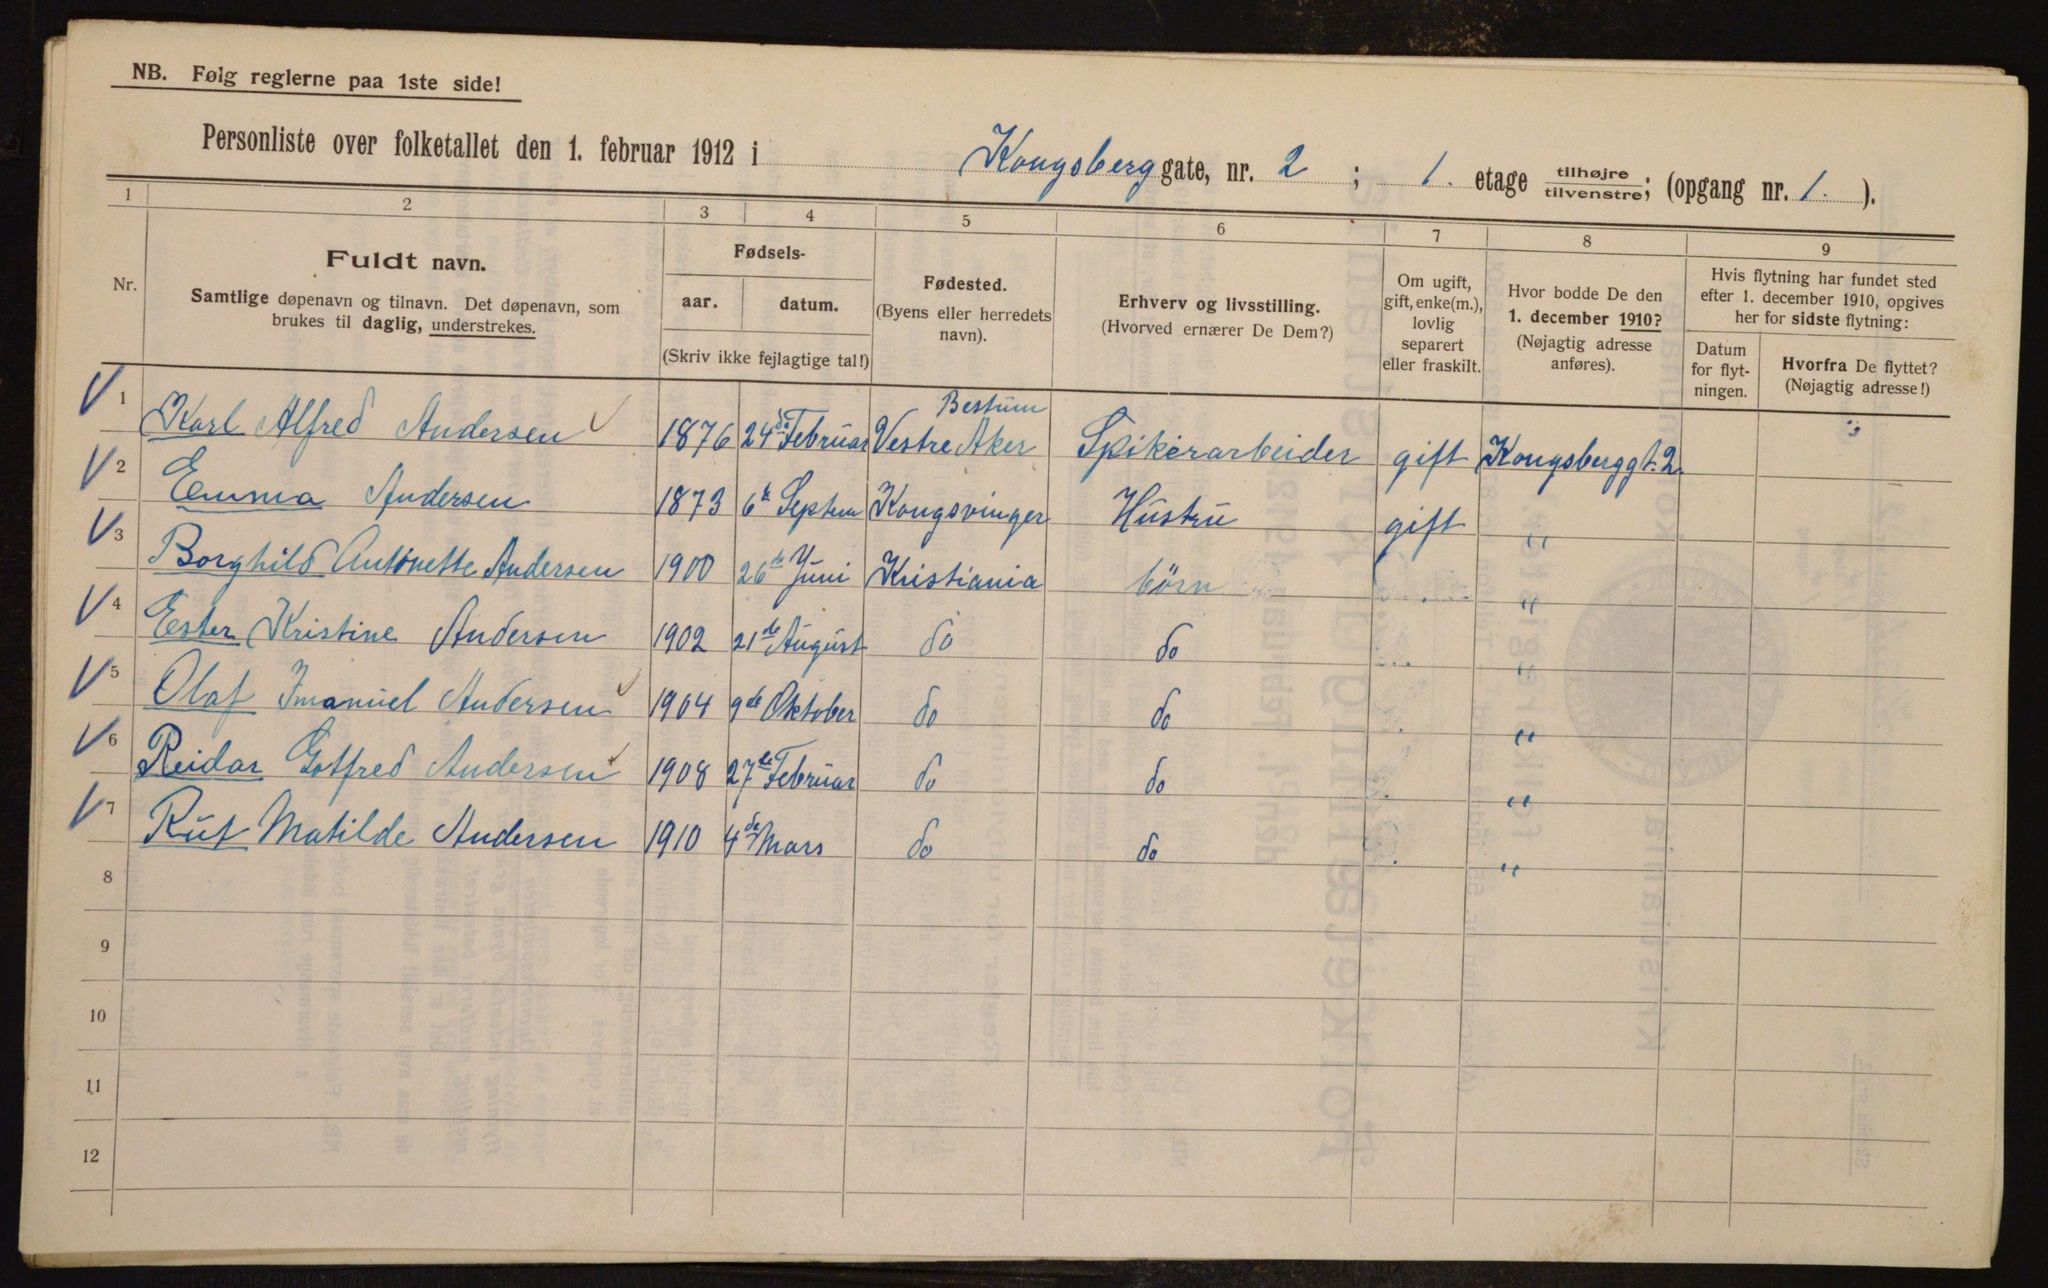 NB. Følg reglerne paa 1ste side!
Personliste over folketallet den 1. februar 1912 i Kongsberg gate, nr. 2 ; 1. etage tilhøjre/tilvenstre; (opgang nr. 1. ).
1 2 3 4 5 6 7 8 9
Nr.
Fuldt navn.
Samtlige døpenavn og tilnavn. Det døpenavn, som
brukes til daglig, understrekes.
Fødsels-
aar. datum.
(Skriv ikke fejlagtige tal!)
Fødested.
(Byens eller herredets
navn).
Erhverv og livsstilling.
(Hvorved ernærer De Dem?)
Om ugift,
gift, enke(m.),
lovlig
separert
eller fraskilt.
Hvor bodde De den
1. december 1910?
(Nøjagtig adresse
anføres).
Hvis flytning har fundet sted
efter 1. december 1910, opgives
her for sidste flytning:
Datum
for flyt-
ningen.
Hvorfra De flyttet?
(Nøjagtig adresse!)
Bestum
1 Karl Alfred Andersen 1876 24de Februar Vestre Aker Spikerarbeider gift Kongsberggt. 2
2 Emma Andersen 1873 6te Septem Kongsvinger Hustru gift "
3 Borghild Antonette Andersen 1900 26de Juni Kristiania børn "
4 Ester Kristine Andersen 1902 21de August do do "
5 Olaf Imanuel Andersen 1904 9de Oktober do do "
6 Reidar Gotfred Andersen 1908 27de Februar do do "
7 Rut Matilde Andersen 1910 4de Mars do do "
8
9
10
11
12